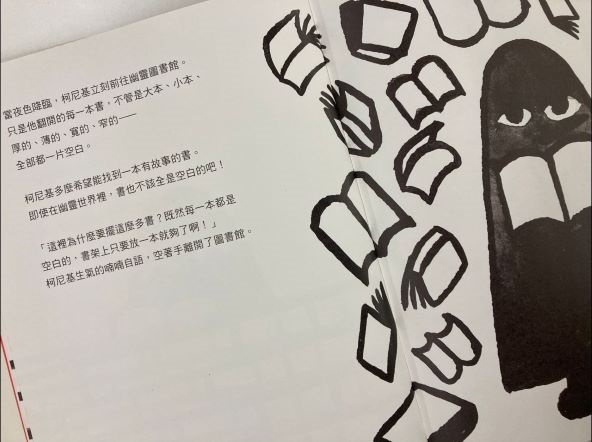 當夜色降臨，柯尼基立刻前往幽靈圖書館。
只是他翻開的每一本書，不管是大本、小本、
厚的、薄的、寬的、窄的——
全部都一片空白。
柯尼基多麼希望能找到一本有故事的書。
即使在幽靈世界裡，書也不該全是空白的吧！
「這裡為什麼要擺這麼多書？既然每一本都是
空白的，書架上只要放一本就夠了啊！」
柯尼基生氣的喃喃自語，空著手離開了圖書館。